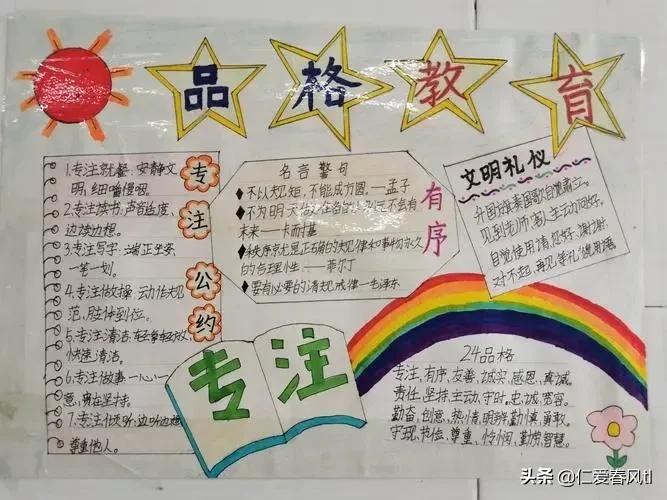 品格教育
专注公约
1.专注就餐:安静文
明,细嚼慢咽。
2.专注读书:声音适度,
边读边想。
3.专注写字:端正坐姿,
一笔一划。
4.专注做操:动作规
范,肢体到位。
5.专注清洁:轻拿轻放,
快速清洁。
6.专注做事:一心一
意,贵在坚持。
7.专注倾听:边听边想
尊重他人。
名言警句
不以规矩,不能成方圆。——孟子
不为明天做
未来——卡耐基
秩序
的合理性——菲尔丁
要有必要的清规戒律——毛泽东
有序
文明礼仪
升国旗奏国歌自觉肃立。
见到老师客人主动问好。
自觉使用请、您好、谢谢、
对不起、再见等礼貌用语
专注
24品格
专注、有序、友善、诚实、感恩、真诚、
责任、坚持、主动、守时、忠诚、宽容、
勤奋、创意、热情、明辨、勤慎、勇敢、
守规、节俭、尊重、怜悯、勤劳、智慧。
头条 @仁爱春风tl